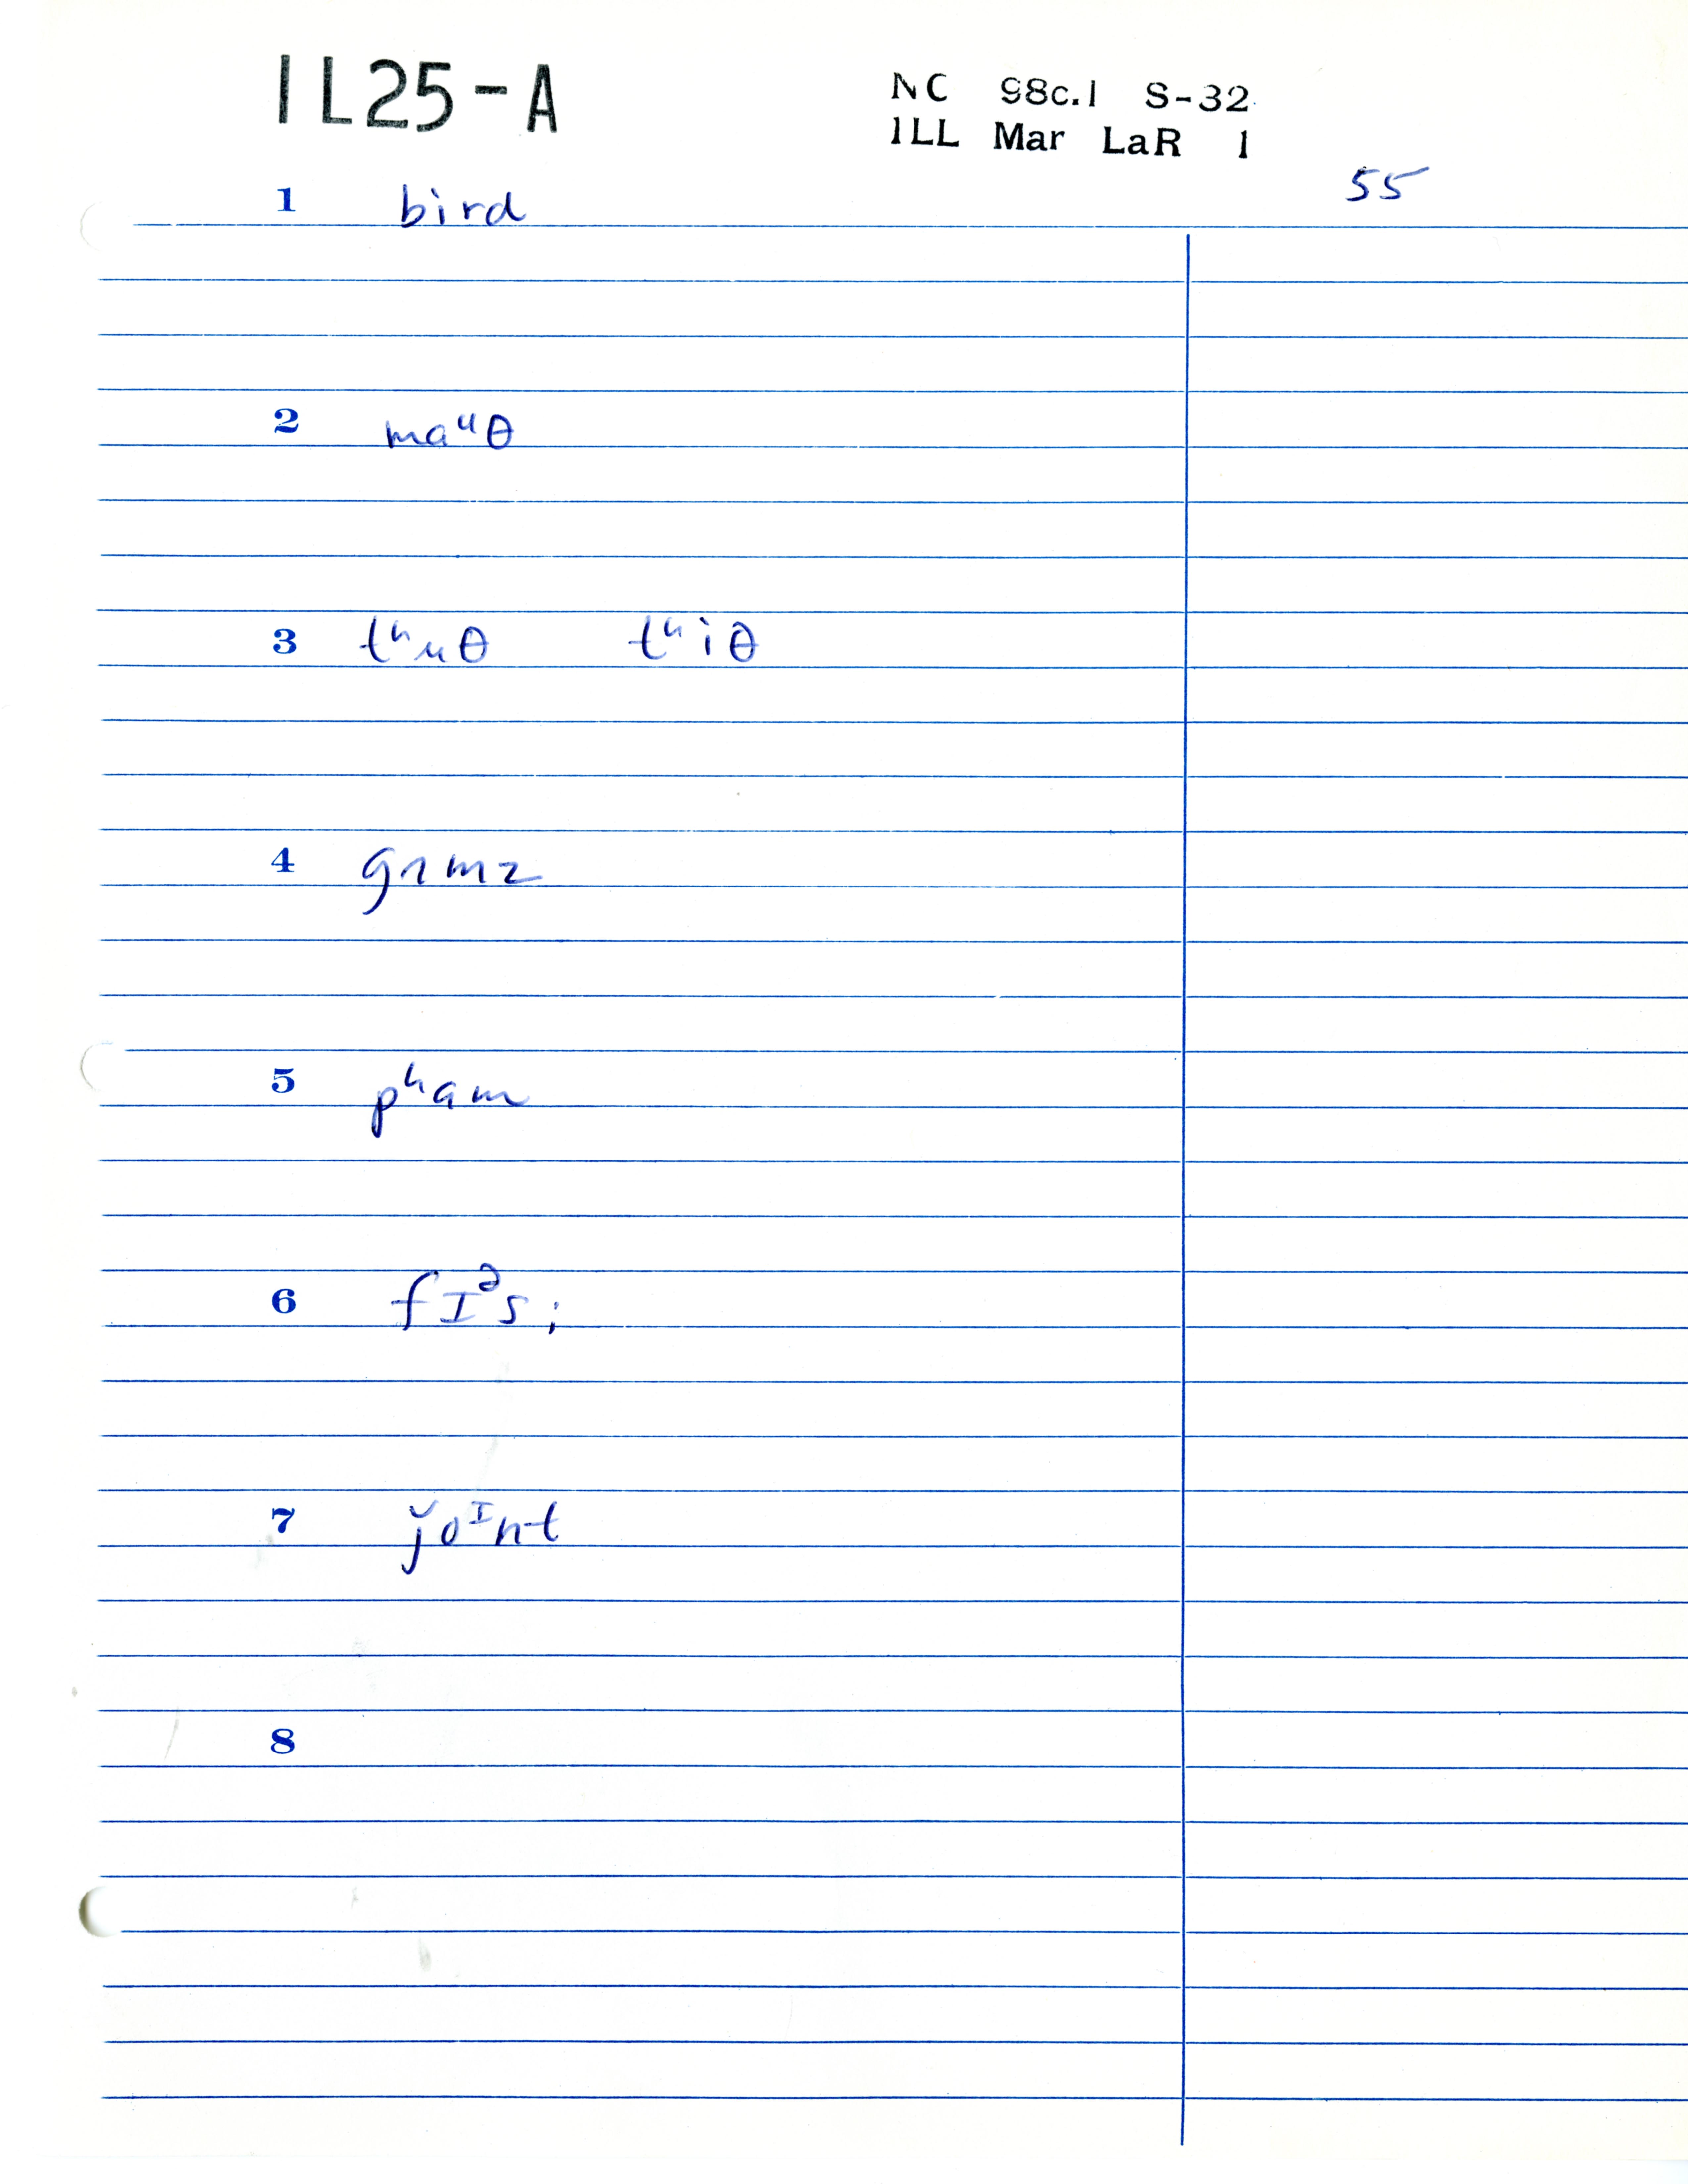 IL25-A
NC 98c.1 S-32
ILL Mar LaR 1
55
1 bird
2 maᵘθ
3 tʰuθ tʰiθ
4 gʌmz
5 pʰam
6 fɪᵊs;
7 ǰoᶦnt
8